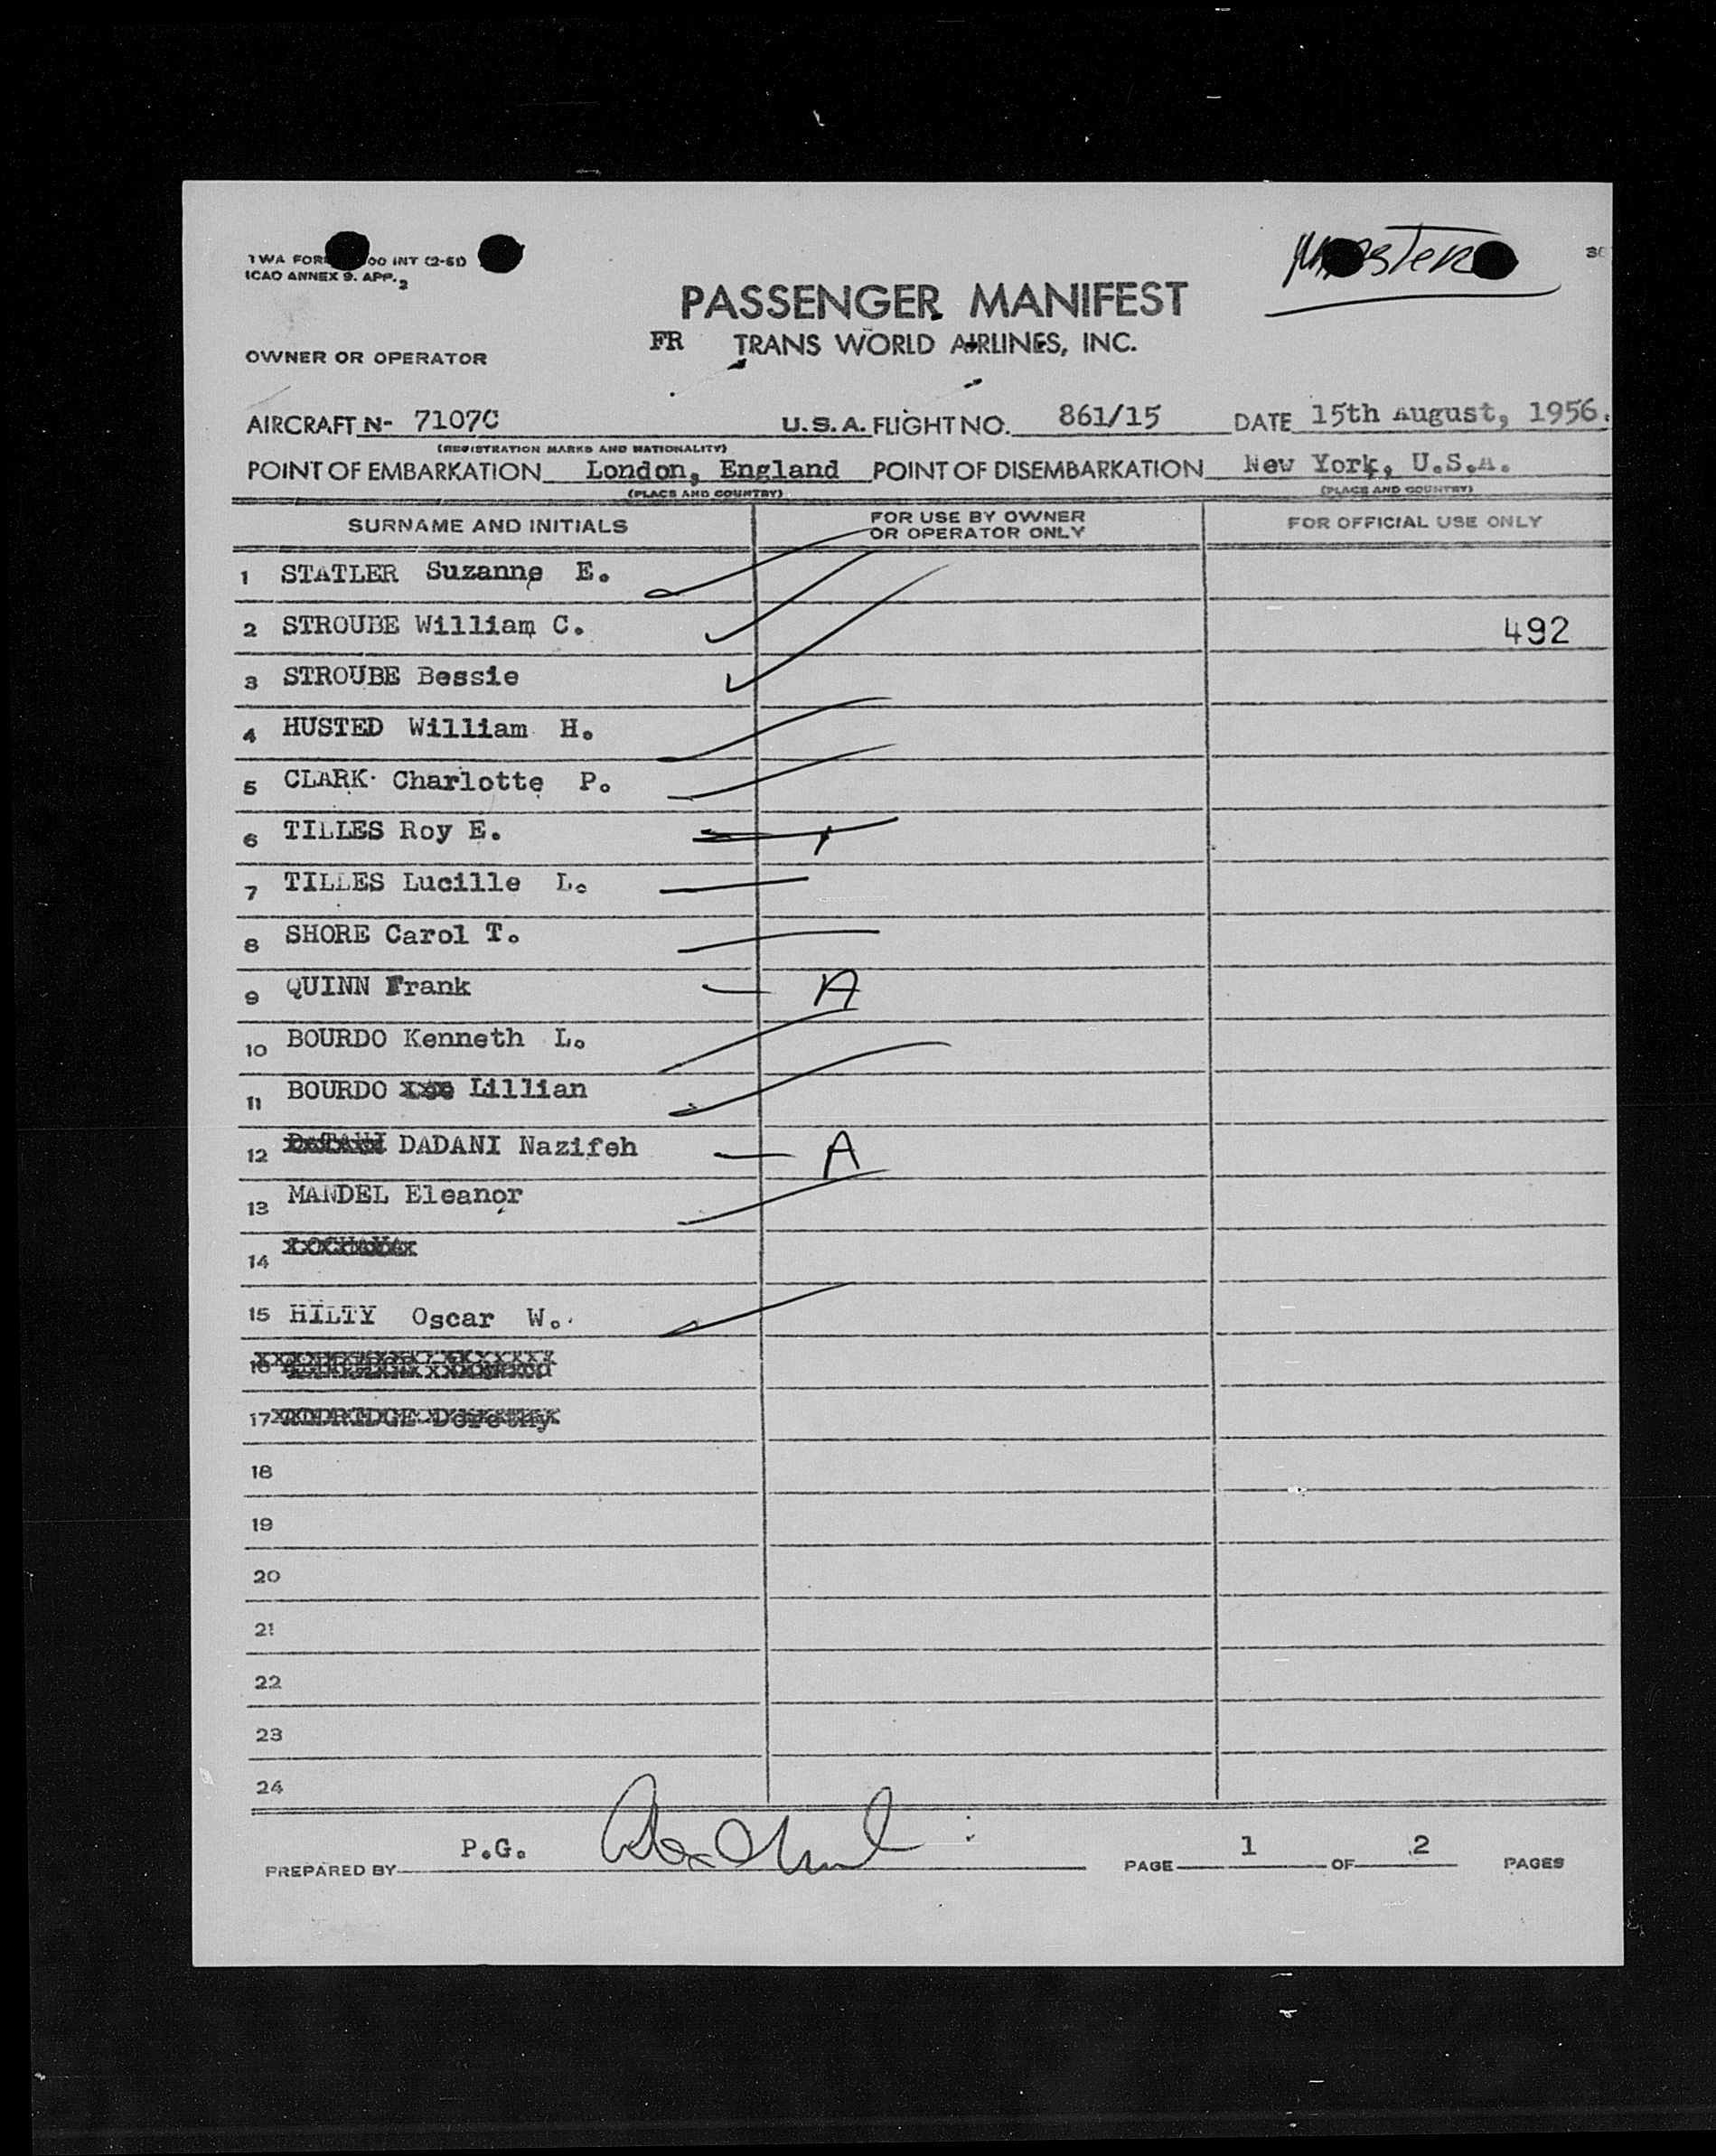 TWA FORM 00 INT (2-51)
ICAO ANNEX 9. APP. 2
Master
PASSENGER MANIFEST
FR TRANS WORLD AIRLINES, INC.
OWNER OR OPERATOR
AIRCRAFT N- 7107C U.S.A. FLIGHT NO. 861/15 DATE 15th August, 1956.
(REGISTRATION MARKS AND NATIONALITY)
POINT OF EMBARKATION London, England POINT OF DISEMBARKATION New York, U.S.A.
(PLACE AND COUNTRY) (PLACE AND COUNTRY)
SURNAME AND INITIALS FOR USE BY OWNER OR OPERATOR ONLY FOR OFFICIAL USE ONLY
1 STATLER Suzanne E.
2 STROUBE William C. 492
3 STROUBE Bessie
4 HUSTED William H.
5 CLARK Charlotte P.
6 TILLES Roy E.
7 TILLES Lucille L.
8 SHORE Carol T.
9 QUINN Frank A
10 BOURDO Kenneth L.
11 BOURDO Lillian
12 DADANI Nazifeh A
13 MANDEL Eleanor
14
15 HILTY Oscar W.
16
17 Dorothy
18
19
20
21
22
23
24
PREPARED BY P.G. PAGE 1 OF 2 PAGES